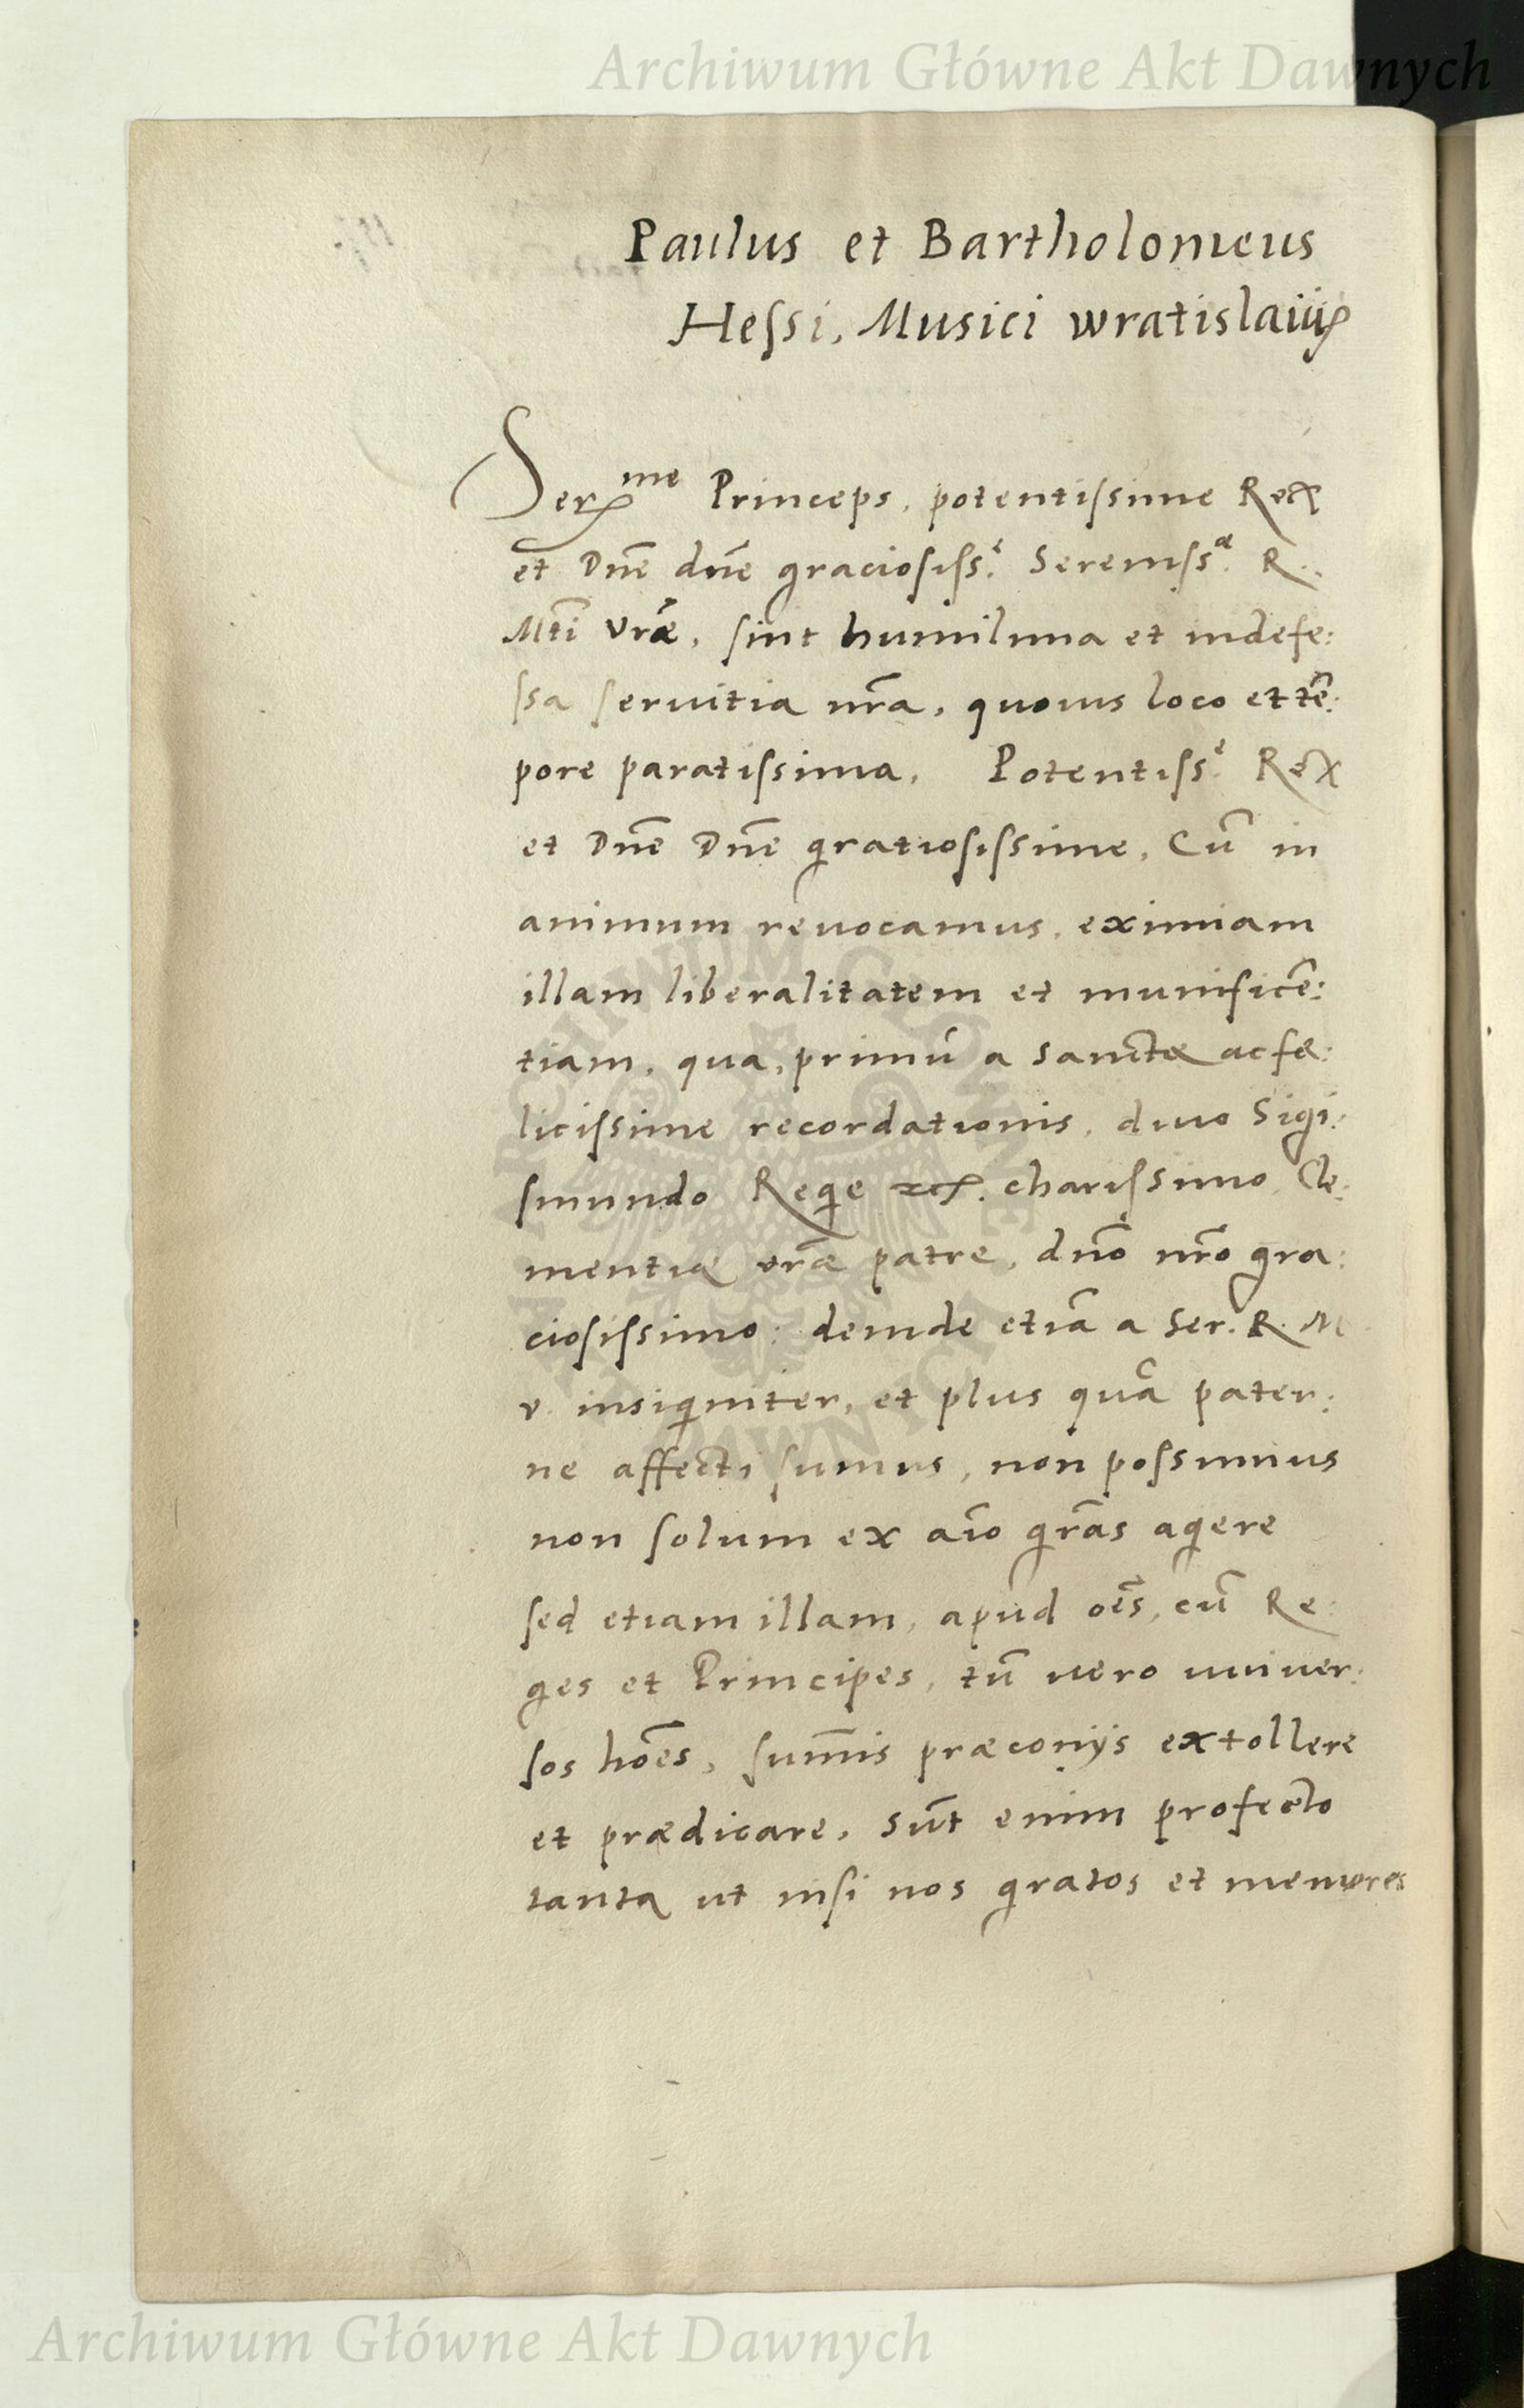 Archiwum Główne Akt Dawnych
Paulus et Bartholomeus
Hessi, Musici wratislauiẽ
Serme Princeps, potentissime Rex
et Dñe dñe graciosiss.e Sereniss.æ R.
Mti vræ, sint humilima et indefe:
ssa seruitia nr̃a, quouis loco et tẽ:
pore paratissima, Potentiss.e Rex
et Dñe Dñe gratiosissime, Cũ in
animum reuocamus, eximiam
illam liberalitatem et munificẽ:
tiam, qua, primũ a sanctæ ac fæ:
licissime recordationis, diuo Sigi:
smundo Rege etc. charissimo Cle:
mentiæ vr̃æ patre, dño nr̃o gra:
ciosissimo: deinde etiã a Ser. R. M
v. insigniter, et plus quã pater:
ne affecti sumus, non possumus
non solum ex aĩo gr̃as agere
sed etiam illam, apud oẽs, cũ Re:
ges et Principes, tũ uero uniuer:
sos hoẽs, sum̃is præconijs extollere
et prædicare, sũt enim profecto
tanta ut nisi nos gratos et memores
ARCHIWUM GŁÓWNE
AKT DAWNYCH
Archiwum Główne Akt Dawnych